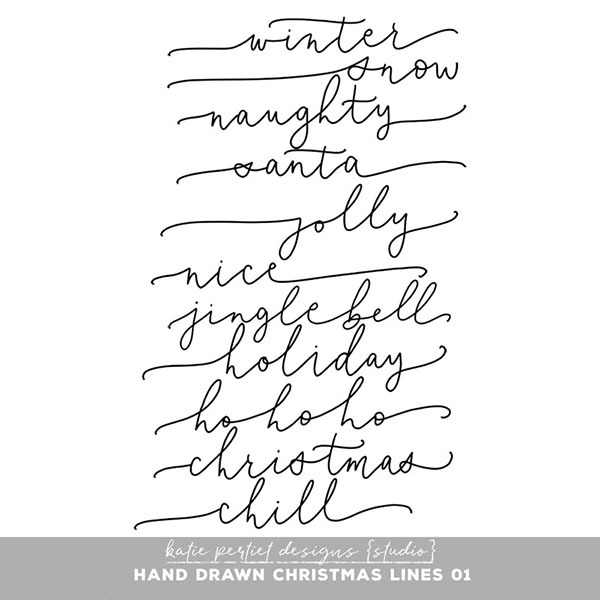 winter
snow
naughty
santa
jolly
nice
jingle bell
holiday
ho ho ho
christmas
chill
katie pertiet designs {studio}
HAND DRAWN CHRISTMAS LINES 01